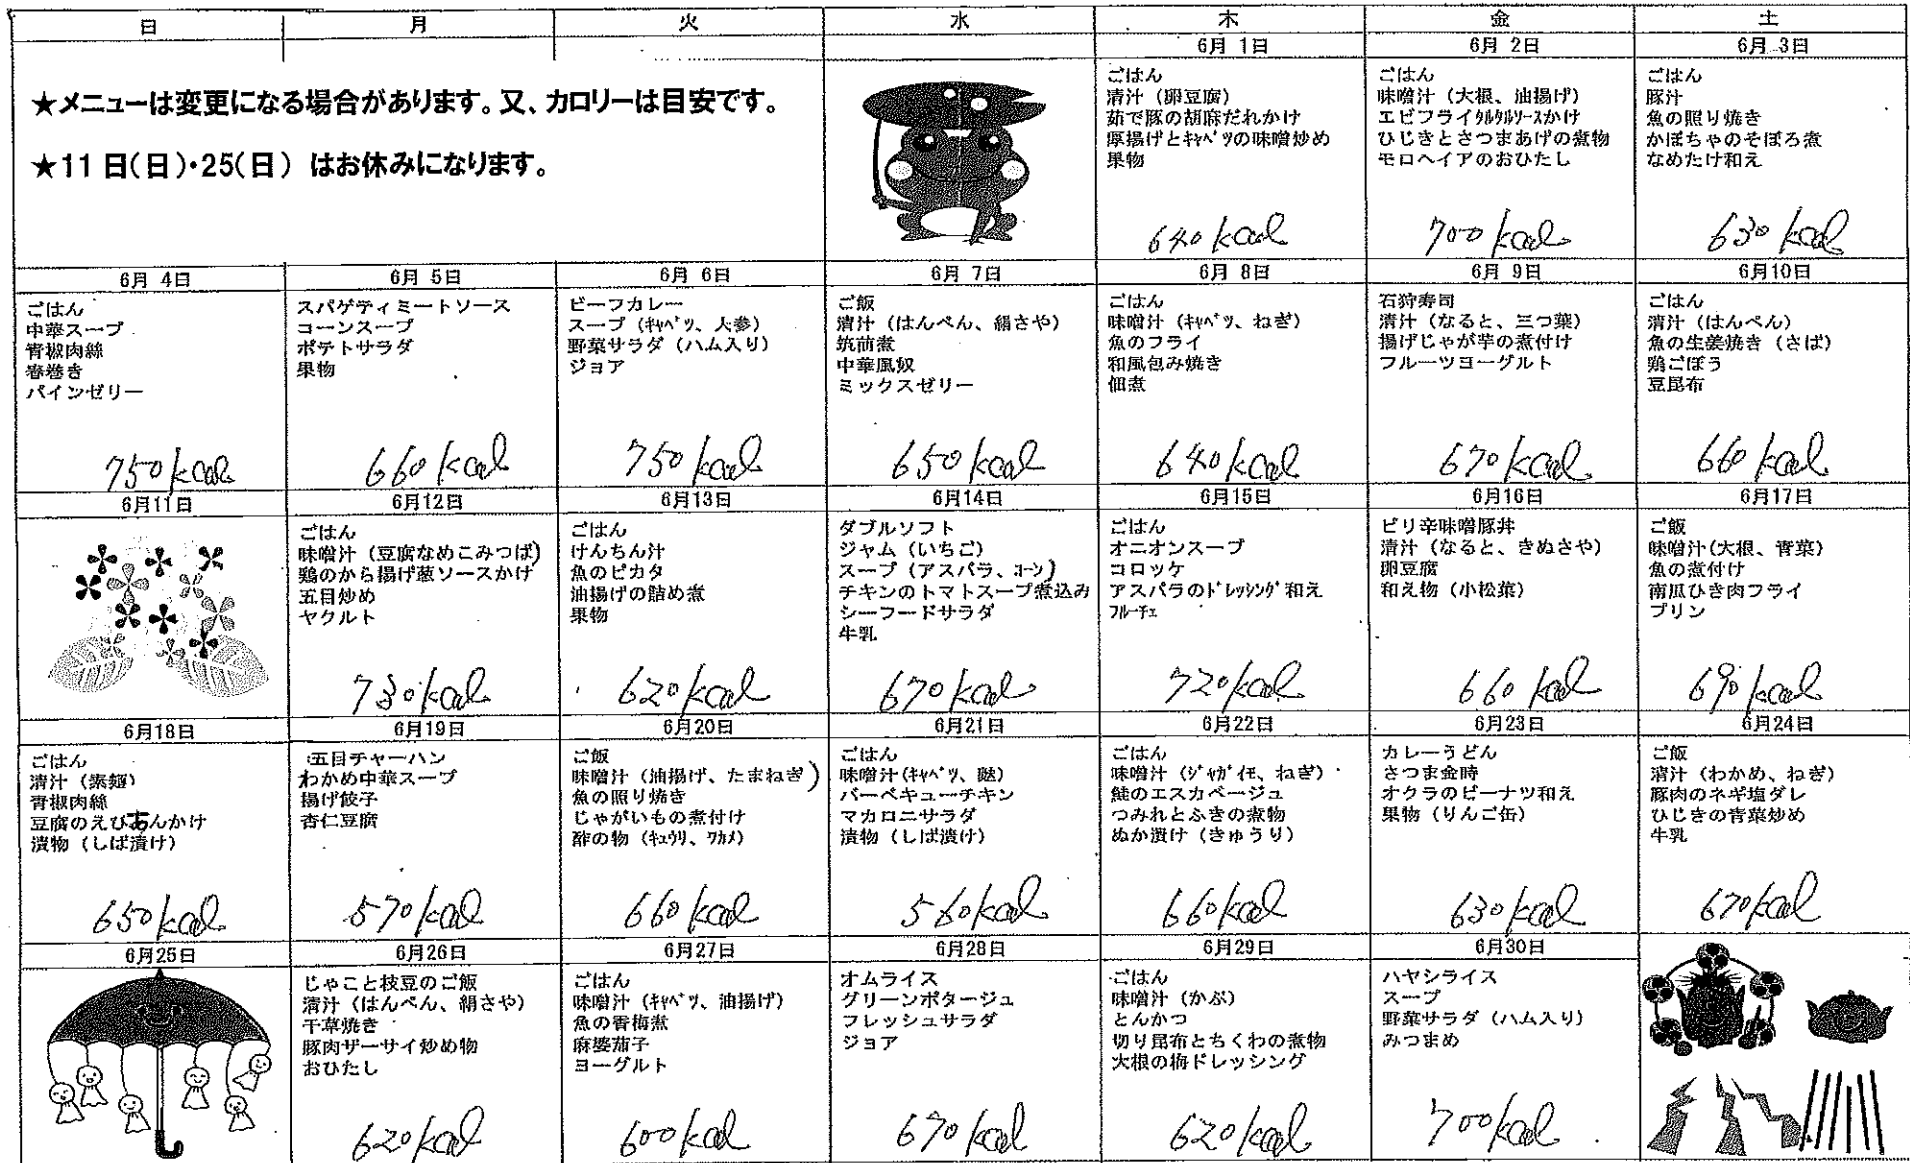 日 月 火 水 木 金 土
6月 1日 6月 2日 6月 3日
★メニューは変更になる場合があります。又、カロリーは目安です。
★11日(日)・25(日) はお休みになります。
ごはん
清汁（卵豆腐）
茹で豚の胡麻だれかけ
厚揚げとｷｬﾍﾞﾂの味噌炒め
果物
640kcal
ごはん
味噌汁（大根、油揚げ）
エビフライﾀﾙﾀﾙｿｰｽかけ
ひじきとさつまあげの煮物
モロヘイアのおひたし
700kcal
ごはん
豚汁
魚の照り焼き
かぼちゃのそぼろ煮
なめたけ和え
630kcal
6月 4日 6月 5日 6月 6日 6月 7日 6月 8日 6月 9日 6月10日
ごはん
中華スープ
青椒肉絲
春巻き
パインゼリー
750kcal
スパゲティミートソース
コーンスープ
ポテトサラダ
果物
660kcal
ビーフカレー
スープ（ｷｬﾍﾞﾂ、人参）
野菜サラダ（ハム入り）
ジョア
750kcal
ご飯
清汁（はんぺん、絹さや）
筑前煮
中華風奴
ミックスゼリー
650kcal
ごはん
味噌汁（ｷｬﾍﾞﾂ、ねぎ）
魚のフライ
和風包み焼き
佃煮
640kcal
石狩寿司
清汁（なると、三つ葉）
揚げじゃが芋の煮付け
フルーツヨーグルト
670kcal
ごはん
清汁（はんぺん）
魚の生姜焼き（さば）
鶏ごぼう
豆昆布
660kcal
6月11日 6月12日 6月13日 6月14日 6月15日 6月16日 6月17日
ごはん
味噌汁（豆腐なめこみつば）
鶏のから揚げ葱ソースかけ
五目炒め
ヤクルト
730kcal
ごはん
けんちん汁
魚のピカタ
油揚げの詰め煮
果物
620kcal
ダブルソフト
ジャム（いちご）
スープ（アスパラ、ｺｰﾝ）
チキンのトマトスープ煮込み
シーフードサラダ
牛乳
670kcal
ごはん
オニオンスープ
コロッケ
アスパラのﾄﾞﾚｯｼﾝｸﾞ和え
ﾌﾙｰﾁｪ
720kcal
ピリ辛味噌豚丼
清汁（なると、きぬさや）
卵豆腐
和え物（小松菜）
660kcal
ご飯
味噌汁(大根、青菜)
魚の煮付け
南瓜ひき肉フライ
プリン
690kcal
6月18日 6月19日 6月20日 6月21日 6月22日 6月23日 6月24日
ごはん
清汁（素麺）
青椒肉絲
豆腐のえびあんかけ
漬物（しば漬け）
650kcal
五目チャーハン
わかめ中華スープ
揚げ餃子
杏仁豆腐
570kcal
ご飯
味噌汁（油揚げ、たまねぎ）
魚の照り焼き
じゃがいもの煮付け
酢の物（ｷｭｳﾘ、ﾜｶﾒ）
660kcal
ごはん
味噌汁(ｷｬﾍﾞﾂ、麩)
バーベキューチキン
マカロニサラダ
漬物（しば漬け）
560kcal
ごはん
味噌汁（ｼﾞｬｶﾞｲﾓ、ねぎ）
鮭のエスカベージュ
つみれとふきの煮物
ぬか漬け（きゅうり）
660kcal
カレーうどん
さつま金時
オクラのピーナツ和え
果物（りんご缶）
630kcal
ご飯
清汁（わかめ、ねぎ）
豚肉のネギ塩ダレ
ひじきの青菜炒め
牛乳
670kcal
6月25日 6月26日 6月27日 6月28日 6月29日 6月30日
じゃこと枝豆のご飯
清汁（はんぺん、絹さや）
千草焼き
豚肉ザーサイ炒め物
おひたし
620kcal
ごはん
味噌汁（ｷｬﾍﾞﾂ、油揚げ）
魚の香梅煮
麻婆茄子
ヨーグルト
600kcal
オムライス
グリーンポタージュ
フレッシュサラダ
ジョア
670kcal
ごはん
味噌汁（かぶ）
とんかつ
切り昆布とちくわの煮物
大根の梅ドレッシング
620kcal
ハヤシライス
スープ
野菜サラダ（ハム入り）
みつまめ
700kcal